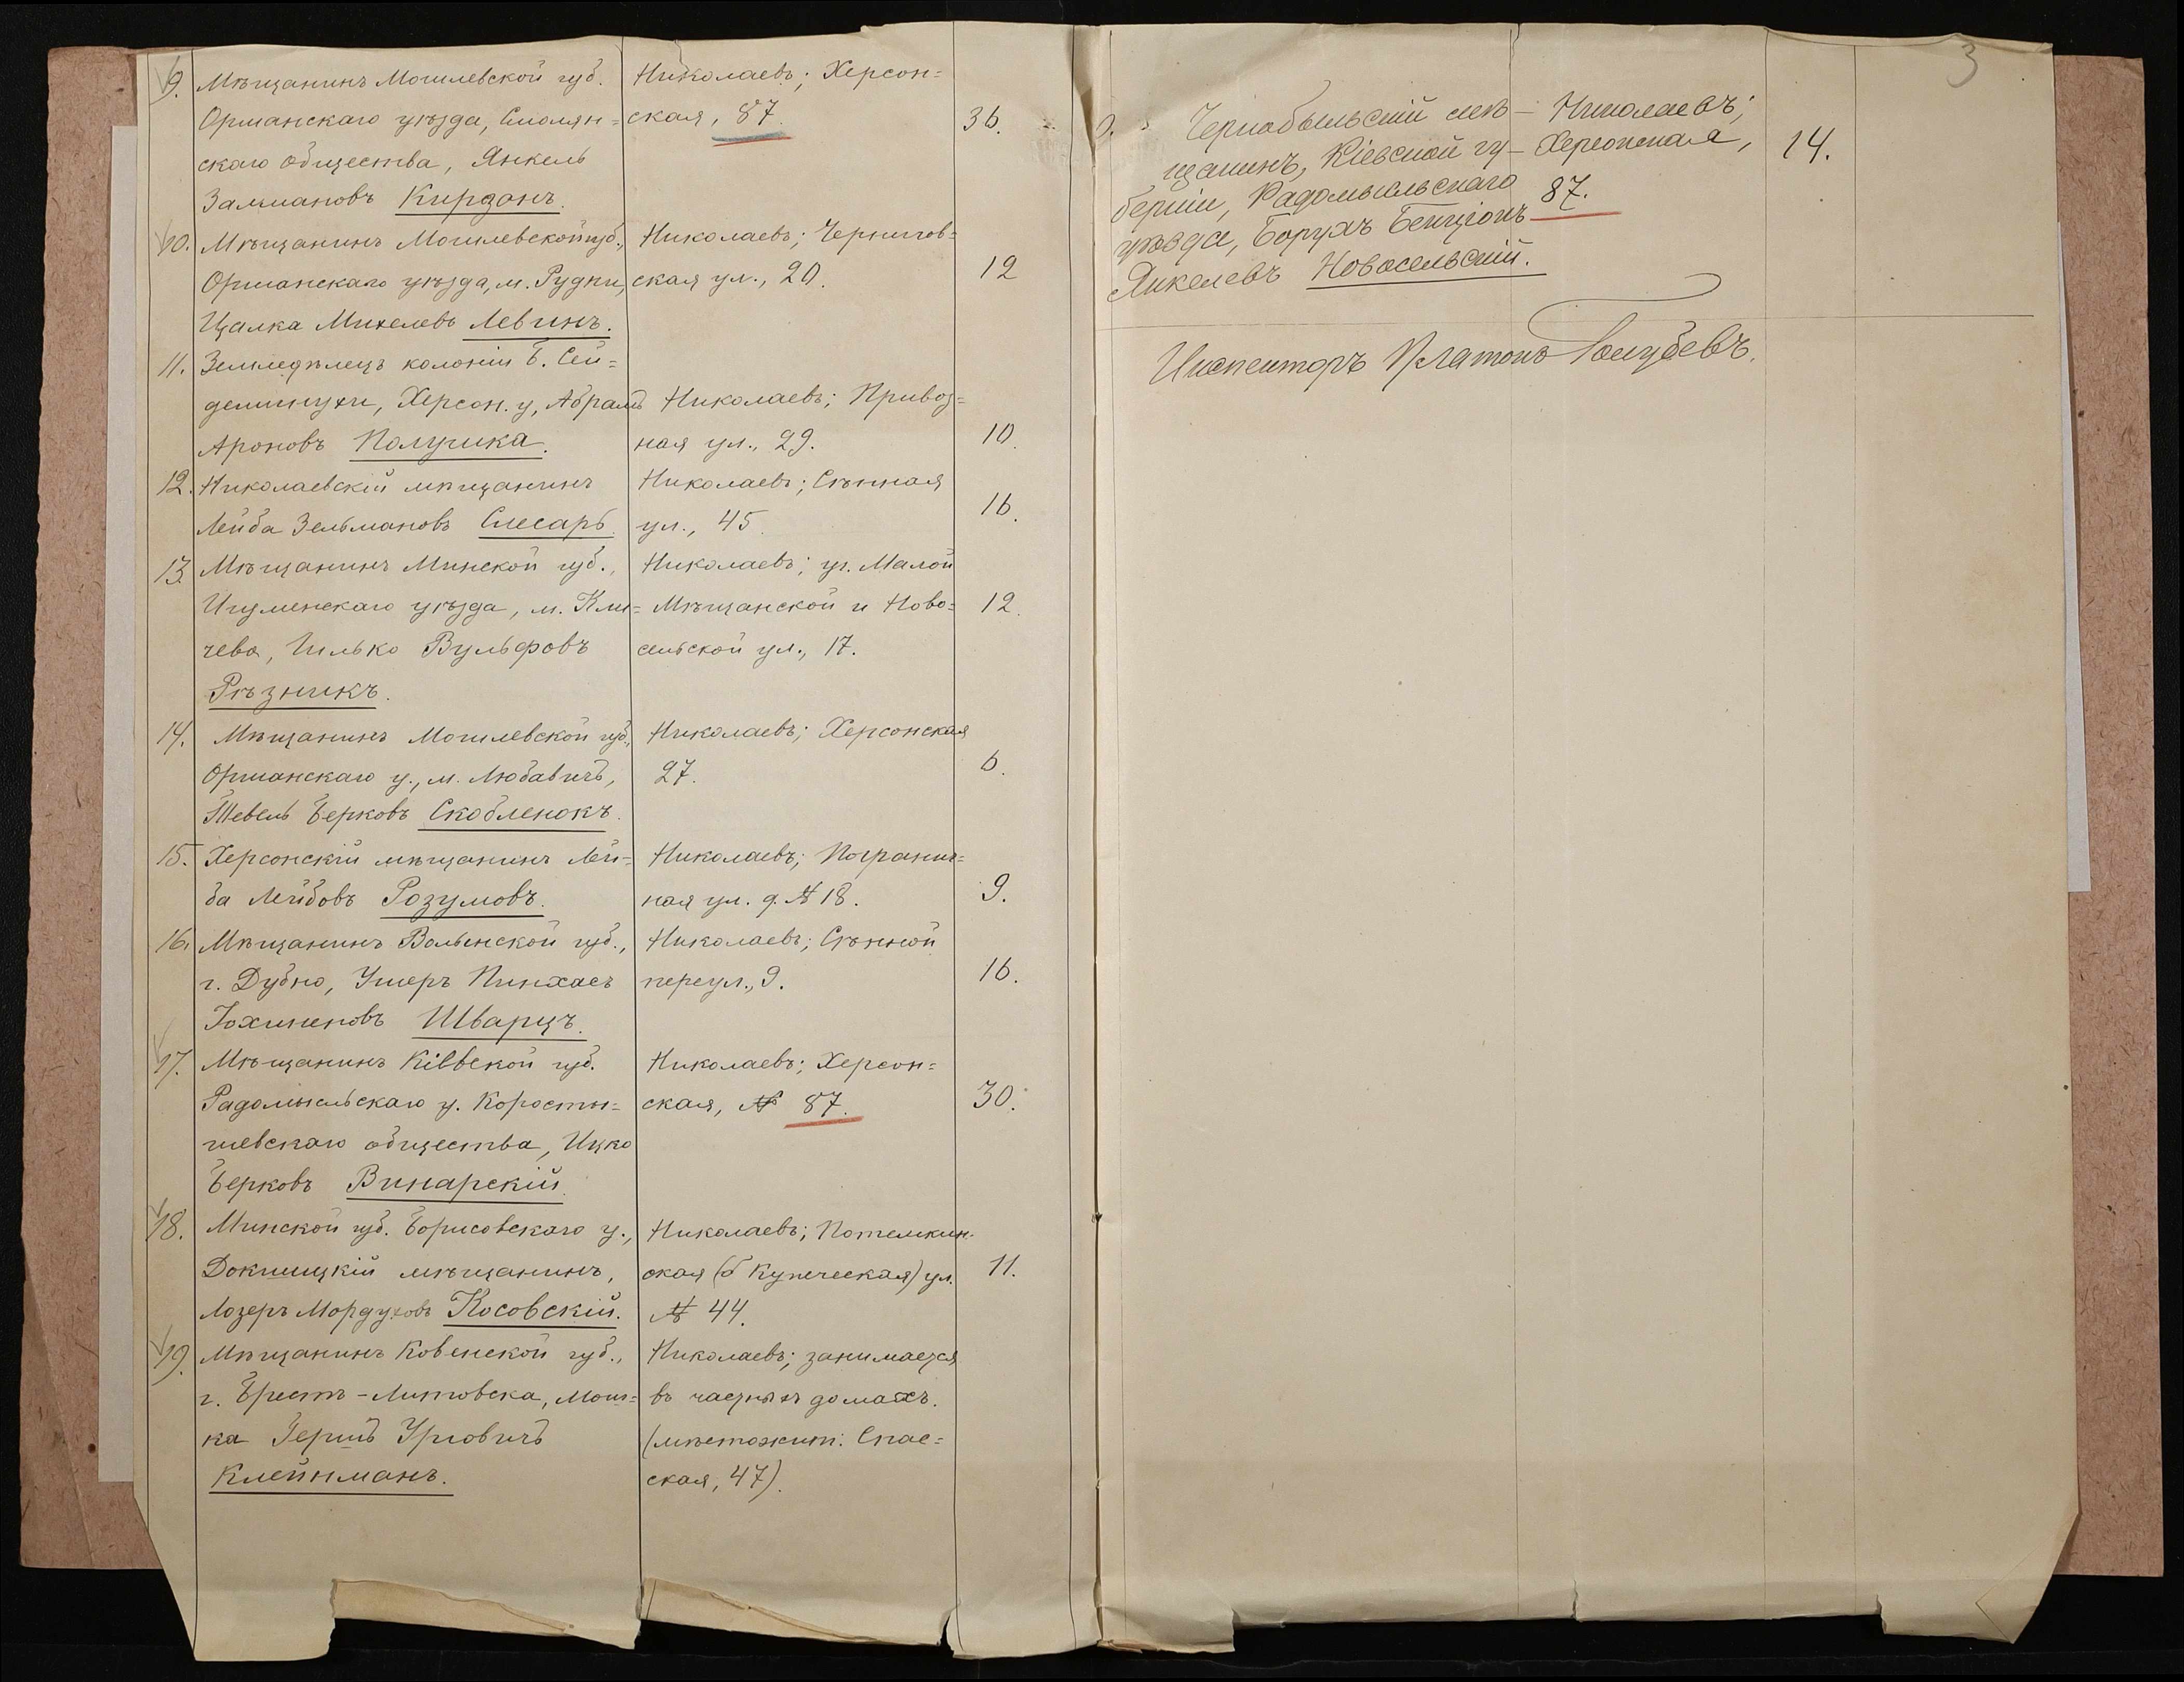 9. Мѣщанинъ Могилевской губ. Николаевъ; Херсон=
Оршанскаго уѣзда, Смолян= ская, 87. 36.
скаго общества, Янкель
Залмановъ Кирзонъ.
10. Мѣщанинъ Могилевской губ., Николаевъ; Чернигов=
Оршанскаго уѣзда, м. Рудни, ская ул., 20. 12
Цалка Михелевъ Левинъ.
11. Земледѣлецъ колоніи Б. Сей=
деминухи, Херсон. у, Абрамъ Николаевъ; Привоз=
Ароновъ Полушка. ная ул., 29. 10.
12. Николаевскій мѣщанинъ Николаевъ; Сѣнная
Лейба Зельмановъ Слесарь ул., 45. 16.
13. Мѣщанинъ Минской губ., Николаевъ; уг. Малой
Игуменскаго уѣзда, м. Кли= Мѣщанской и Ново= 12.
чева, Гилько Вульфовъ сельской ул., 17.
Рѣзникъ.
14. Мѣщанинъ Могилевской губ., Николаевъ; Херсонская
Оршанскаго у., м. Любавичъ, 27. 6.
Тевель Берковъ Скобленокъ.
15. Херсонскій мѣщанинъ Лей= Николаевъ; Погранич=
ба Лейбовъ Розумовъ. ная ул. д. № 18. 9.
16. Мѣщанинъ Волынской губ., Николаевъ; Сѣнной
г. Дубно, Ушеръ Пинхасъ переул., 9. 16.
Шварцъ.
17. Мѣщанинъ Кіевской губ. Николаевъ; Херсон=
Радомысльскаго у. Коросты= ская, № 87. 30.
шевскаго общества, Ицко
Берковъ Винарскій.
18. Минской губ. Борисовскаго у., Николаевъ; Потемкин-
Докшицкій мѣщанинъ, ская (б Купеческая) ул. 11.
Лозеръ Мордуховъ Косовскій. № 44.
19. Мѣщанинъ Ковенской губ., Николаевъ; занимается
г. Брестъ-Литовска, Мош= въ частныхъ домахъ.
ка Гершъ Урловичъ (мѣстожит: Спас=
Клейнманъ. ская, 47).
3
Чернобыльскій мѣ- Николаевъ;
щанинъ, Кіевской гу- Херсонская, 14.
берніи, Радомысльскаго 87.
уѣзда, Борухъ Бенціонъ
Янкелевъ Новосельскій.
Инспекторъ Платонъ Голубевъ.